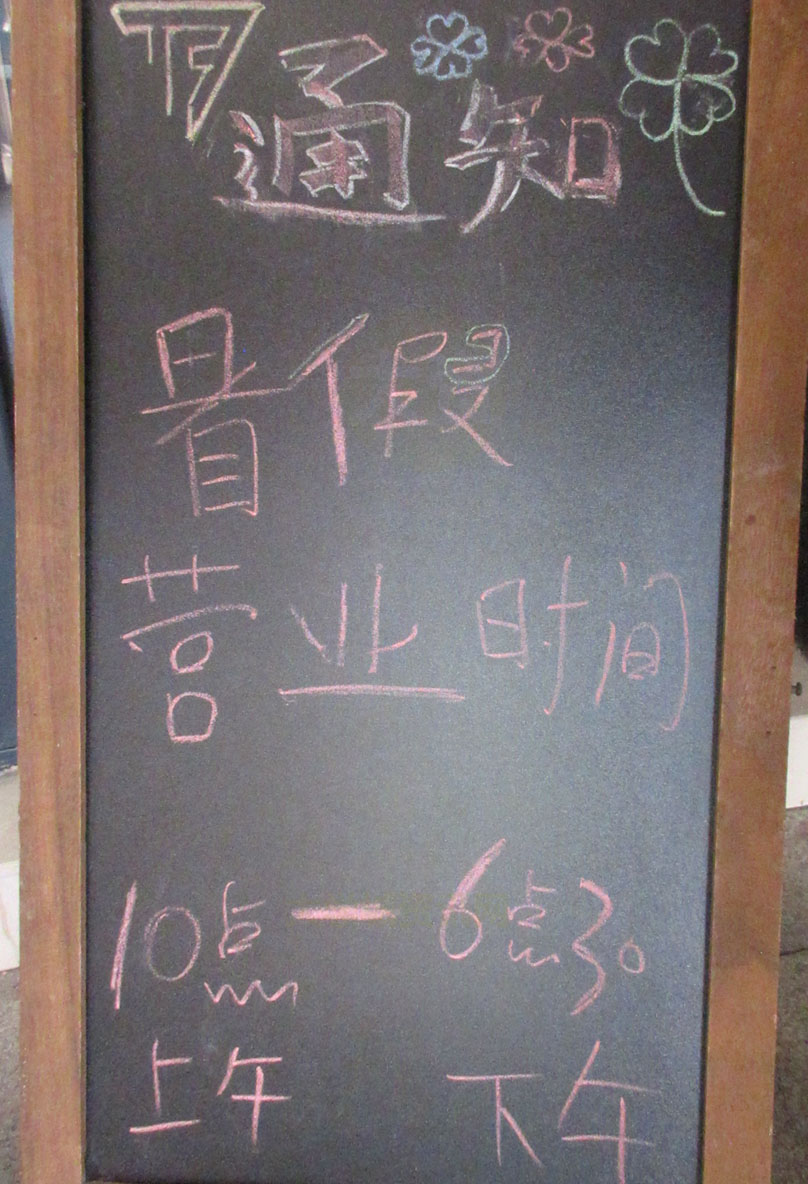 通知
暑假
营业时间
10点一6点30
上午 下午